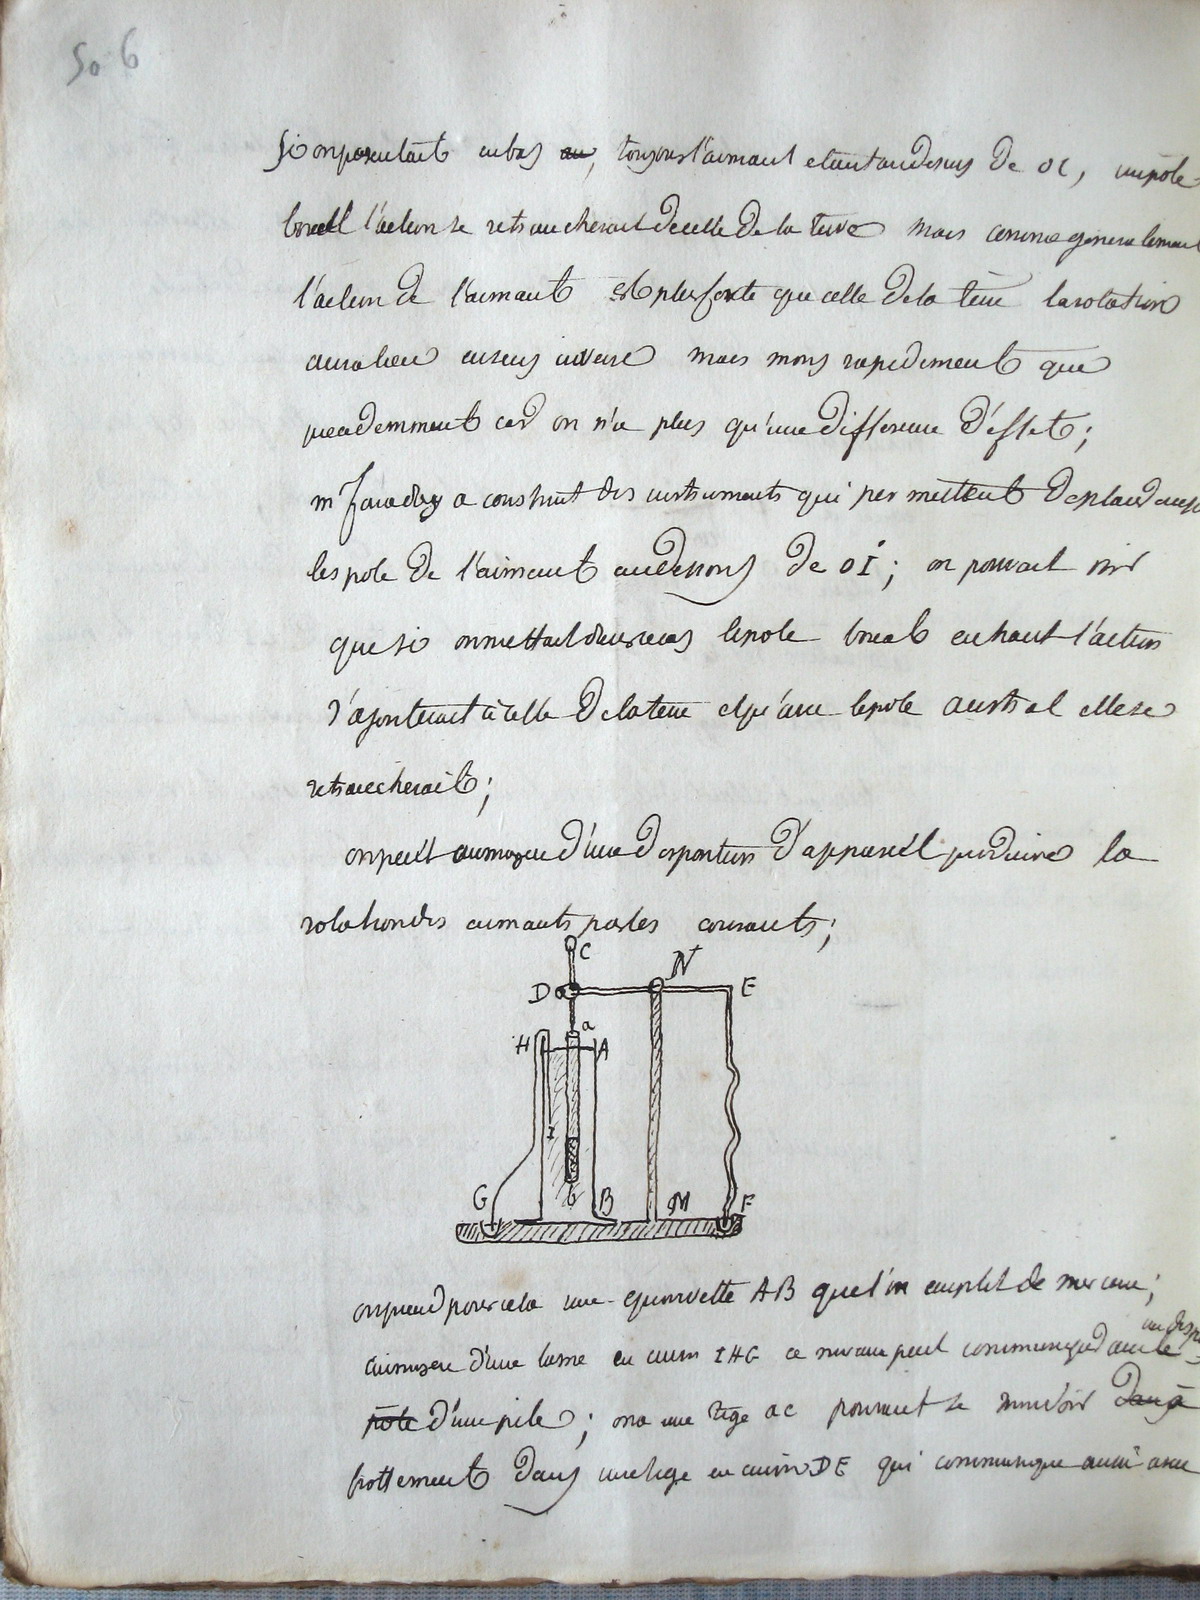 50 6
Si on presentait en bas au, toujours l'aimant etant au dessus de OC, un pole
boreal l'action se retrancherait de celle de la terre mais comme generalement
l'action de l'aimant est plus forte que celle de la terre la rotation
aura lieu en sens inverse mais moins rapidement que
precedemment car on n'a plus qu'une difference d'effet;
mr faraday a construit des instruments qui permettent de placer aussi
les pole de l'aimant au dessous de OI; on pourrait voir
que si on mettait dans ce cas le pole boreal en haut l'action
s'ajouterait à celle de la terre et qu'avec le pole austral elle se
retrancherait;
on peut au moyen d'une disposition d'appareil produire la
rotation des aimants par les courants;
C
N
D
E
a
H
A
I
G
b
B
M
F
on prend pour cela une eprouvette AB que l'on emplit de mercure;
au moyen d'une lame en cuivre IHG ce mercure peut communiquer avec le
pole d'une pile; on a une tige ac pouvant se mouvoir dans à
frottement dans une tige en cuivre DE qui communique aussi avec